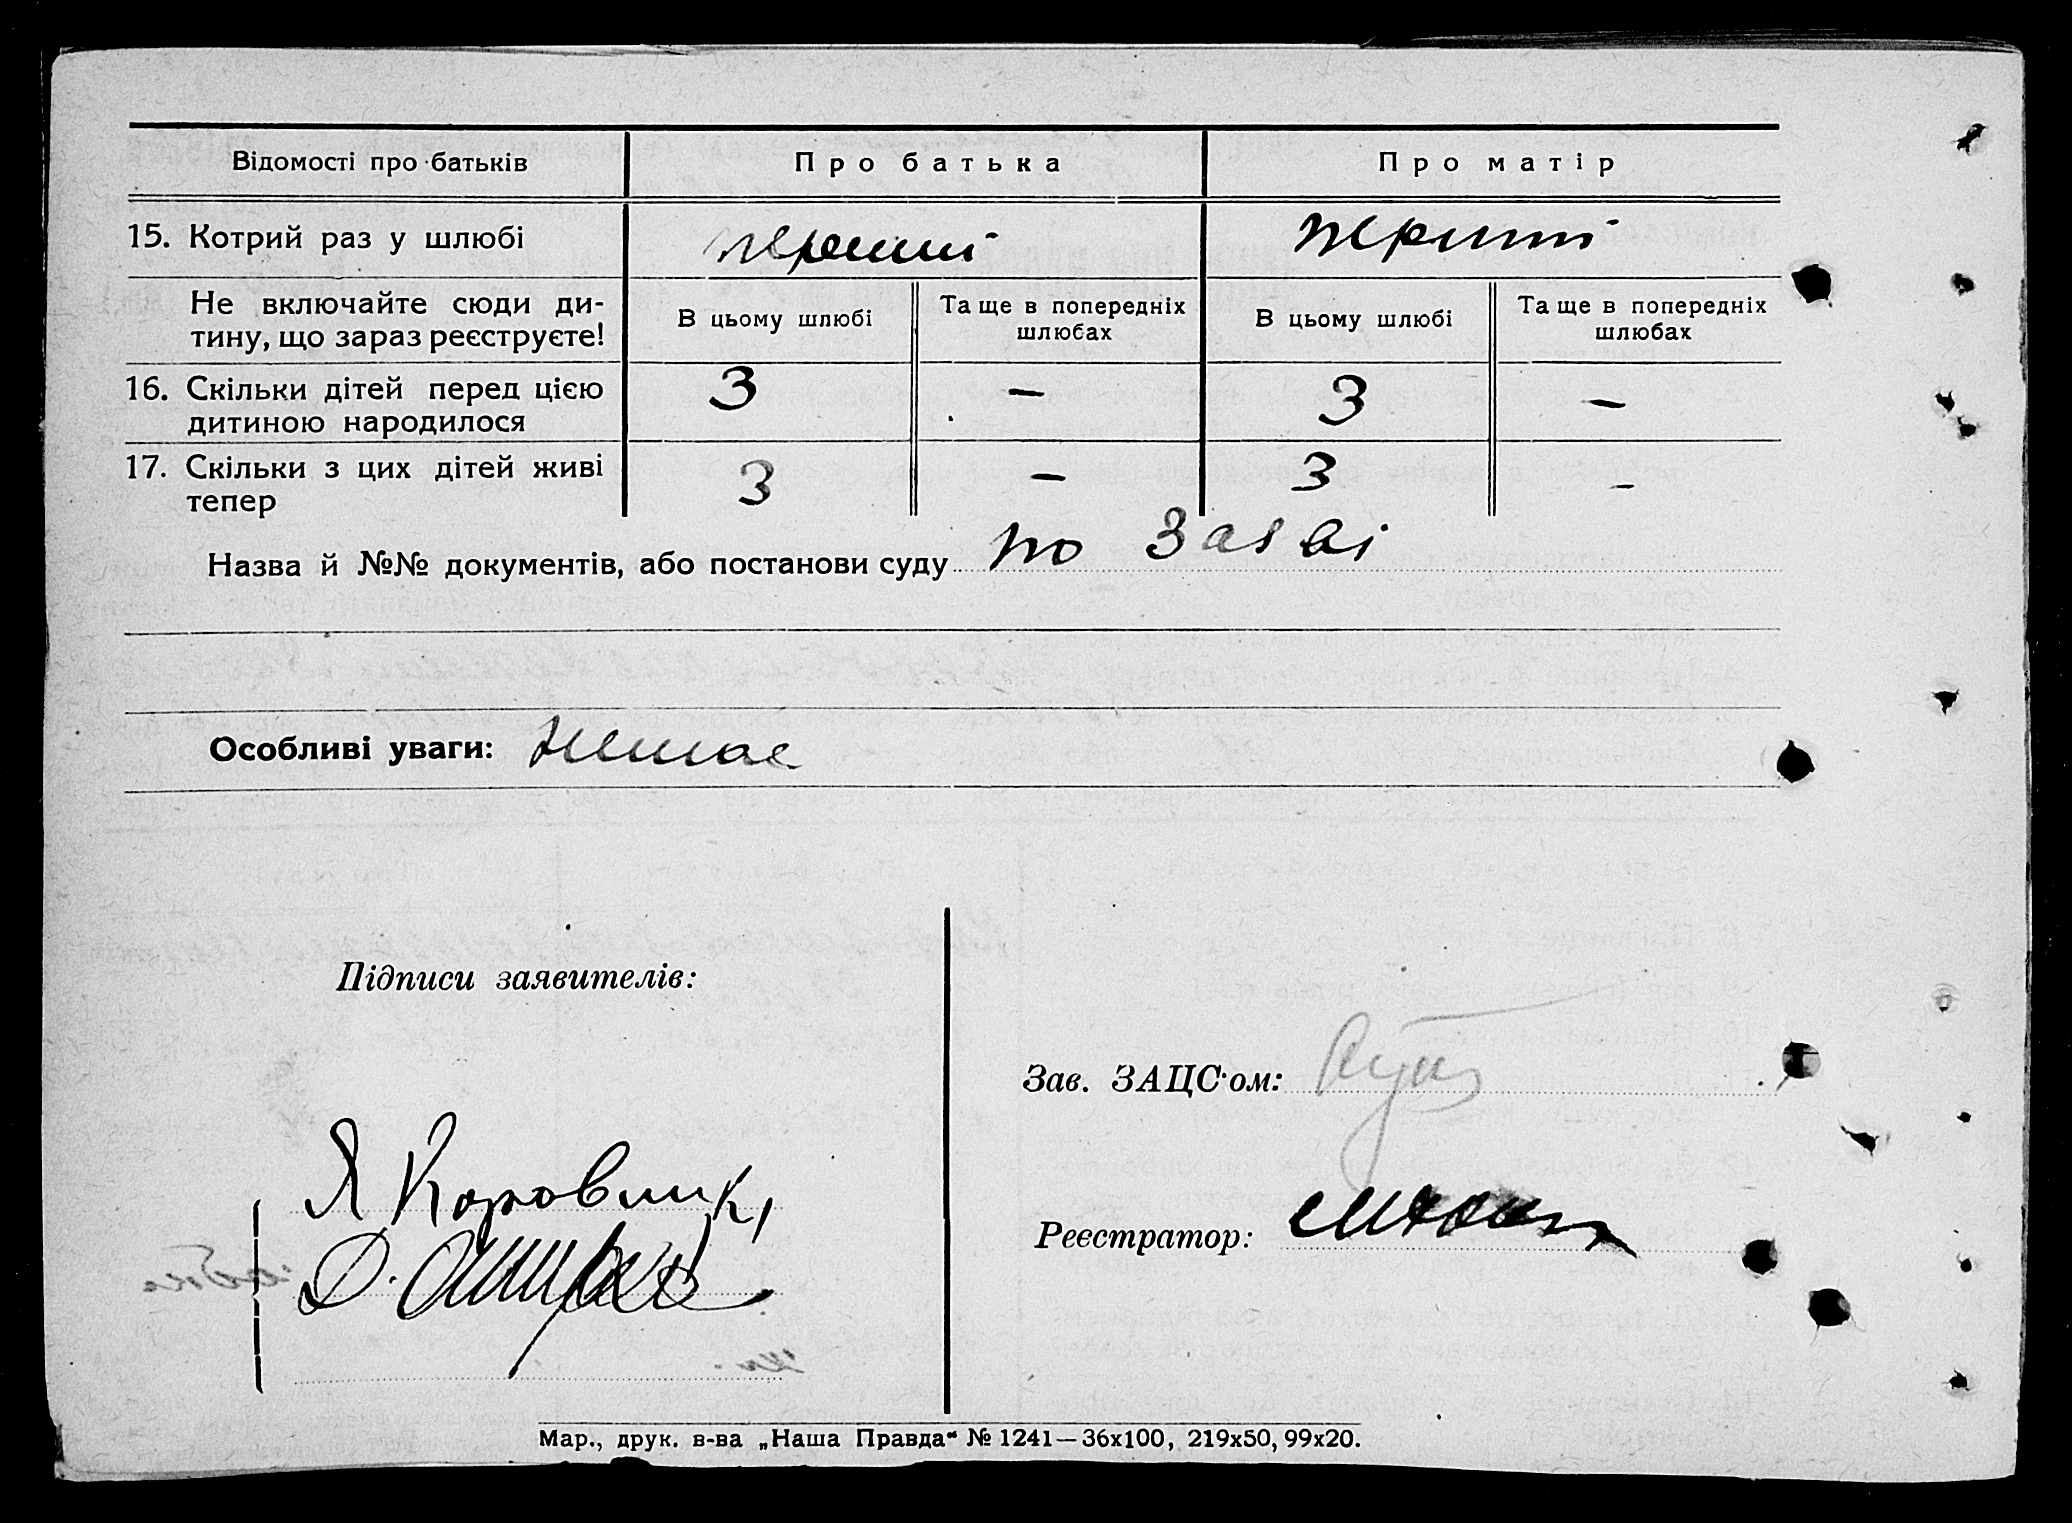 Відомості про батьків Про батька Про матір
15. Котрий раз у шлюбі перший перший
Не включайте сюди ди-
тину, що зараз реєструєте!
В цьому шлюбі Та ще в попередніх шлюбах В цьому шлюбі Та ще в попередніх шлюбах
16. Скільки дітей перед цією
дитиною народилося 3 – 3 –
17. Скільки з цих дітей живі
тепер 3 – 3 –
Назва й №№ документів, або постанови суду по заяві
Особливі уваги: Немає
Підписи заявителів:
Зав. ЗАЦС'ом:
Я
Реєстратор:
Д.
Мар., друк. в-ва „Наша Правда“ № 1241—36х100, 219х50, 99х20.